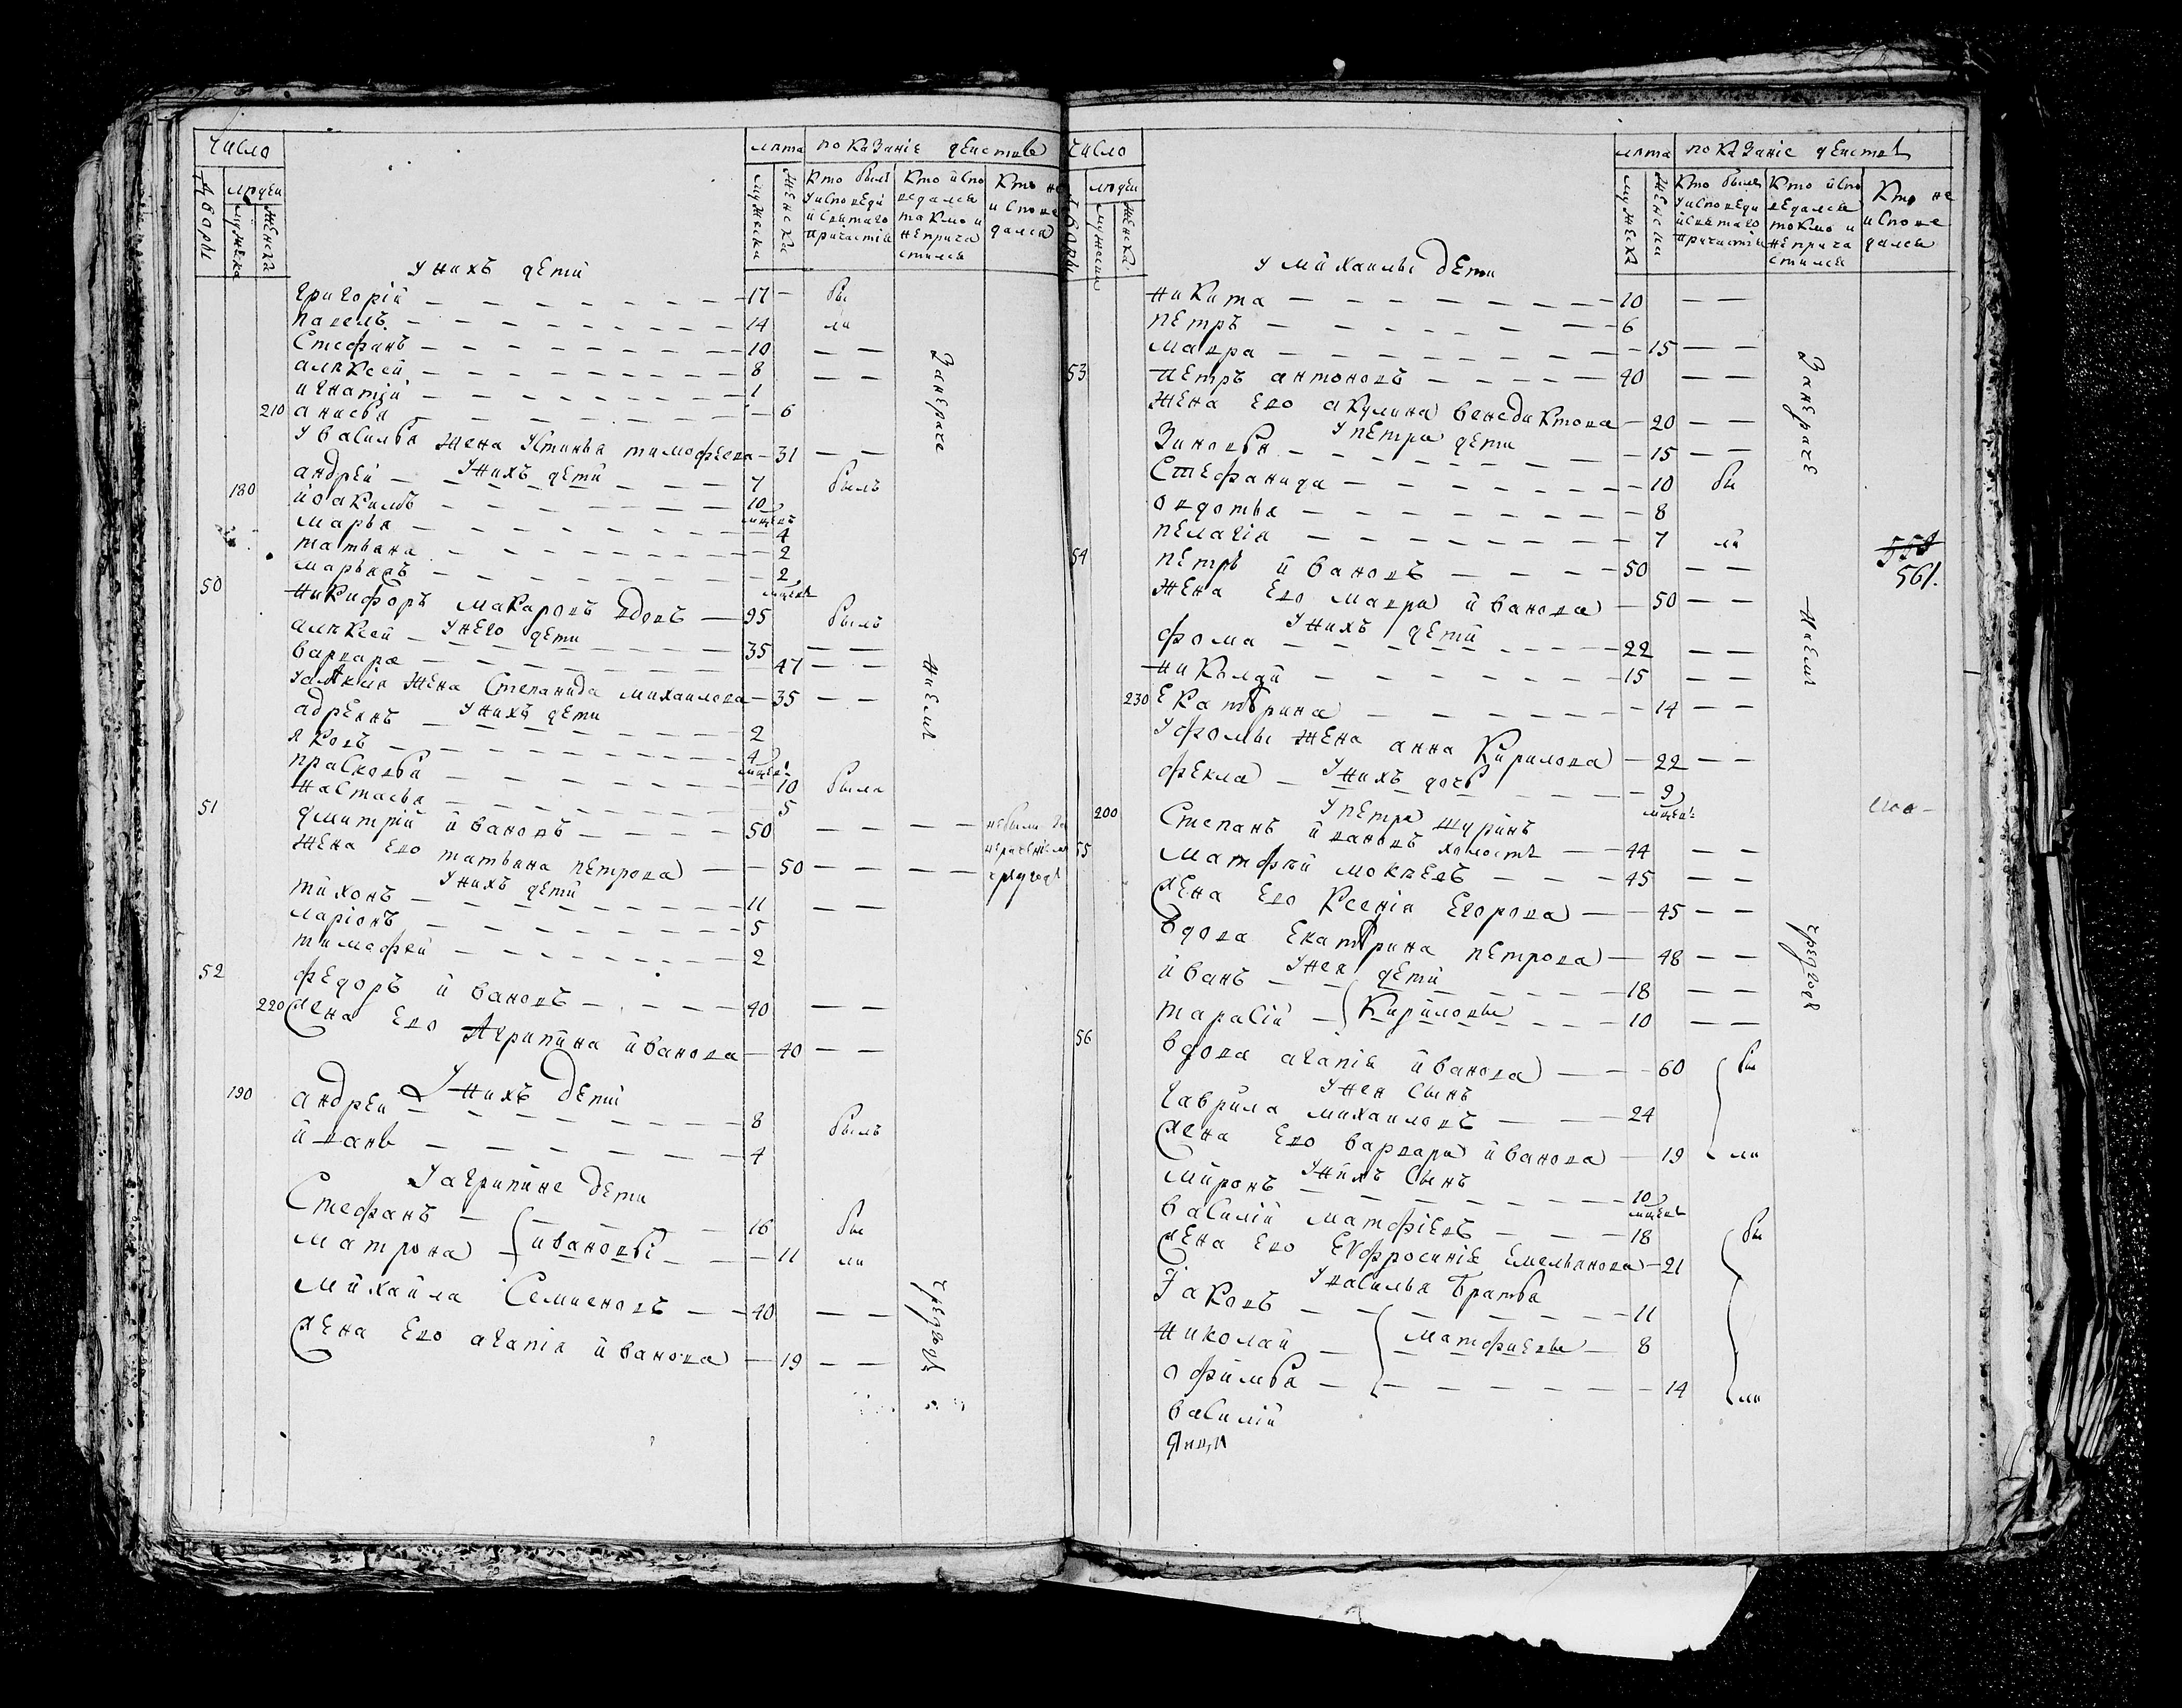 число
лѣта показаніе действъ
дворы
людей
мужска
женска
мужеска
женска
Кто былъ у исповеди и святаго причастія
Кто испо ведался токмо и не прича стился
Кто не испове дался
У нихъ дети
григорій 17 бы
павелъ 14 ли
Стефанъ 10
алѣксей 8
игнатій 1
210 анисья 6
занераче
У василья жена Устинья тимофеева 31
У нихъ дети
андрей 7 былъ
180 иоакимъ 10 мцевъ
марья 4
татьяна 2
марья 2
50 никифоръ макаровъ вдовъ 95 былъ
У него дети
алѣксей 35
варвара 47
У алѣксия жена Степанида михаилова 35
ниемъ
У нихъ дети
адреянъ 2
яковъ 4
прасковья 10 была
настасья 5
51 дмитрий ивановъ 50
жена ево татьяна петрова 50
У нихъ дети
тихонъ 11
ларіонъ 5
тимофей 2
52 федоръ ивановъ 40
220 жена ево Агрипина иванова 40
У нихъ дети
190 андрей 8 былъ
иванъ 4
У агрипине дети
Стефанъ 16 бы
матрона ивановы 11 ли
михайла Семиеновъ 40
жена ево агапия иванова 19
число
людей
лѣта показаніе действъ
дворы
мужеска
женска
мужеска
женски
Кто былъ у исповеди и святаго причастія
Кто испо ведался токмо и не прича стился
Кто не испове дался
У михаилы дети
никита 10
петръ 6
мавра 15
53 петръ антоновъ 40
жена ево акулина венедиктова 20
У петра дети
зиновья 15
Стефанида 10 бы
овдотья 8
пелагія 7 ли
занераче
551
561.
54 петръ ивановъ 50
жена ево мавра иванова 50
У нихъ дети
фома 22
николай 15
230 Екатерина 14
ниемъ
У фомы жена анна Кирилова 22
У нихъ дочь
фекла 9
У петра шуринъ
200 Степанъ ивановъ холостъ 44
55 матфей мокеевъ 45
жена ево Ксения Егорова 45
вдова Екатерина петрова 48
У нея дети
иванъ 18
тарасій Кириловы 10
56 вдова агапія иванова 60 бы
У нея Сынъ
гаврила михаиловъ 24
жена ево варвара иванова 19 ли
У нихъ Сынъ
миронъ 10
василій матфіевъ 18 бы
жена ево Евфросиния Емельянова 21
У василья братья
Іаковъ 11
николай матфиевы 8
офимья 14 ли
василій